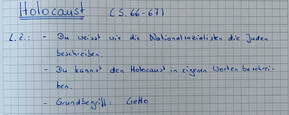 Holocaust (S. 66-67)
L.Z.: - Du weisst wie die Nationalsozialisten die Juden
beschreiben.
- Du kannst den Holocaust in eigenen Worten beschrei-
ben.
- Grundbegriff: Getto